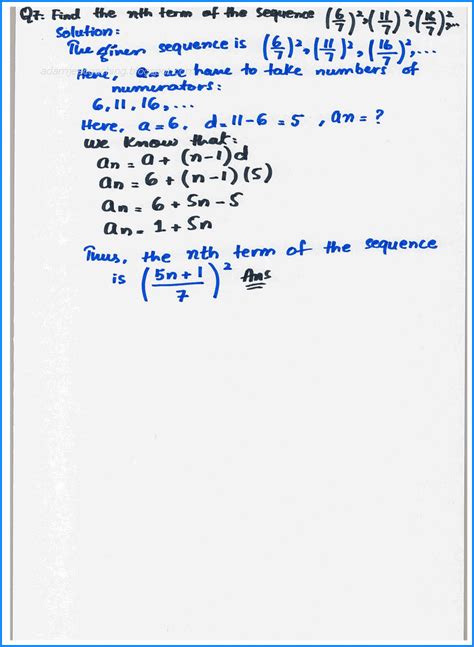 Q7: Find the nth term of the sequence (6/7)², (11/7)², (16/7)², ...
Solution:
The given sequence is (6/7)², (11/7)², (16/7)², ...
Here, we have to take numbers of
numerators:
6, 11, 16, ...
Here, a = 6, d = 11-6 = 5, an = ?
We know that:
an = a + (n-1)d
an = 6 + (n-1)(5)
an = 6 + 5n - 5
an = 1 + 5n
Thus, the nth term of the sequence
is (5n+1/7)² Ans